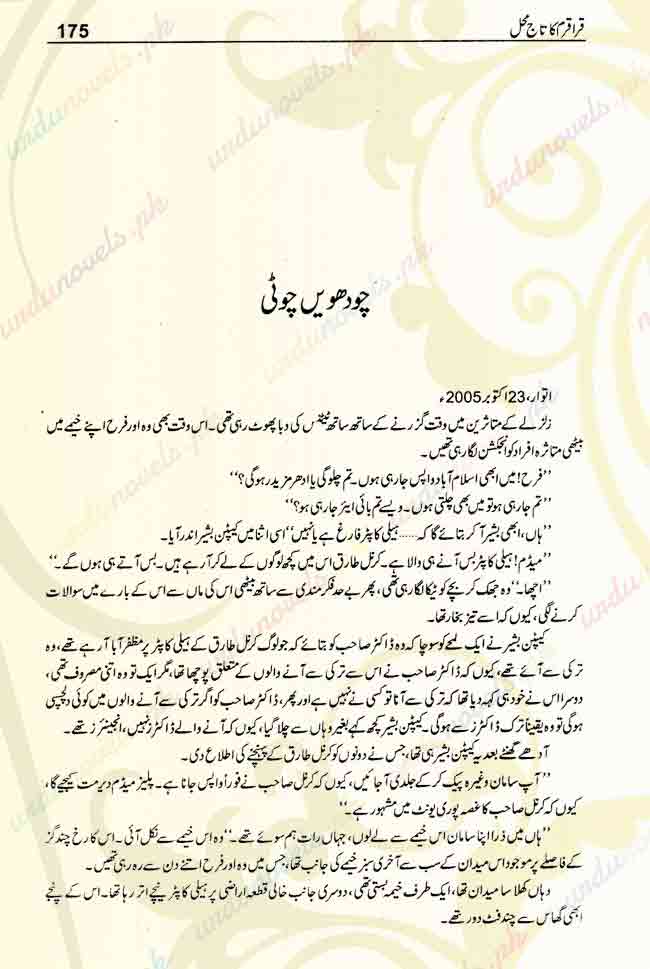 قراقرم کا تاج محل
175
چودھویں چوٹی
اتوار، 23 اکتوبر 2005ء
زلزلے کے متاثرین میں وقت گزرنے کے ساتھ ساتھ ٹیٹنس کی وبا پھوٹ رہی تھی۔ اس وقت بھی وہ اور فرح اپنے خیمے میں
بیٹھی متاثرہ افراد کو انجکشن لگا رہی تھیں۔
’’فرح! میں ابھی اسلام آباد واپس جا رہی ہوں۔ تم چلو گی یا ادھر مزید رہو گی؟‘‘
’’تم جا رہی ہو تو میں بھی چلتی ہوں۔ ویسے تم بائی ایئر جا رہی ہو؟‘‘
’’ہاں، ابھی بشیر آ کر بتائے گا کہ...... ہیلی کاپٹر فارغ ہے یا نہیں‘‘ اسی اثنا میں کیپٹن بشیر اندر آیا۔
’’میڈم! ہیلی کاپٹر بس آنے ہی والا ہے۔ کرنل طارق اس میں کچھ لوگوں کے لے کر آ رہے ہیں۔ بس آتے ہی ہوں گے۔‘‘
’’اچھا۔‘‘ وہ جھک کر بچے کو ٹیکا لگا رہی تھی، پھر بے حد فکر مندی سے ساتھ بیٹھی اس کی ماں سے اس کے بارے میں سوالات
کرنے لگی، کیوں کہ اسے تیز بخار تھا۔
کیپٹن بشیر نے ایک لمحے کو سوچا کہ وہ ڈاکٹر صاحب کو بتائے کہ جو لوگ کرنل طارق کے ہیلی کاپٹر پر مظفر آباد آ رہے تھے، وہ
ترکی سے آئے تھے، کیوں کہ ڈاکٹر صاحب نے اس سے ترکی سے آنے والوں کے متعلق پوچھا تھا، مگر ایک تو وہ اتنی مصروف تھی،
دوسرا اس نے خود ہی کہہ دیا تھا کہ ترکی سے آنا تو کسی نے نہیں ہے اور پھر، ڈاکٹر صاحب کو اگر ترکی سے آنے والوں میں کوئی دلچسپی
ہو گی تو وہ یقیناً ترک ڈاکٹرز سے ہوگی۔ کیپٹن بشیر کچھ کہے بغیر وہاں سے چلا گیا، کیوں کہ آنے والے ڈاکٹرز نہیں، انجینئرز تھے۔
آدھے گھنٹے بعد یہ کیپٹن بشیر ہی تھا، جس نے دونوں کو کرنل طارق کے پہنچنے کی اطلاع دی۔
’’آپ سامان وغیرہ پیک کر کے جلدی آ جائیں، کیوں کہ کرنل صاحب نے فوراً واپس جانا ہے۔ پلیز میڈم دیر مت کیجیے گا،
کیوں کہ کرنل صاحب کا غصہ پوری یونٹ میں مشہور ہے۔‘‘
’’ہاں میں ذرا اپنا سامان اس خیمے سے لے لوں، جہاں رات ہم سوئے تھے۔‘‘ وہ اس خیمے سے نکل آئی۔ اس کا رخ چند گز
کے فاصلے پر موجود اس میدان کے سب سے آخری سبز خیمے کی جانب تھا، جس میں وہ اور فرح اتنے دن سے رہ رہی تھیں۔
وہاں کھلا سا میدان تھا، ایک طرف خیمہ بستی تھی، دوسری جانب خالی قطعہ اراضی پر ہیلی کاپٹر نیچے اتر رہا تھا۔ اس کے پنجے
ابھی گھاس سے چند فٹ دور تھے۔
urdunovels.pk
urdunovels.pk
urdunovels.pk
urdunovels.pk
urdunovels.pk